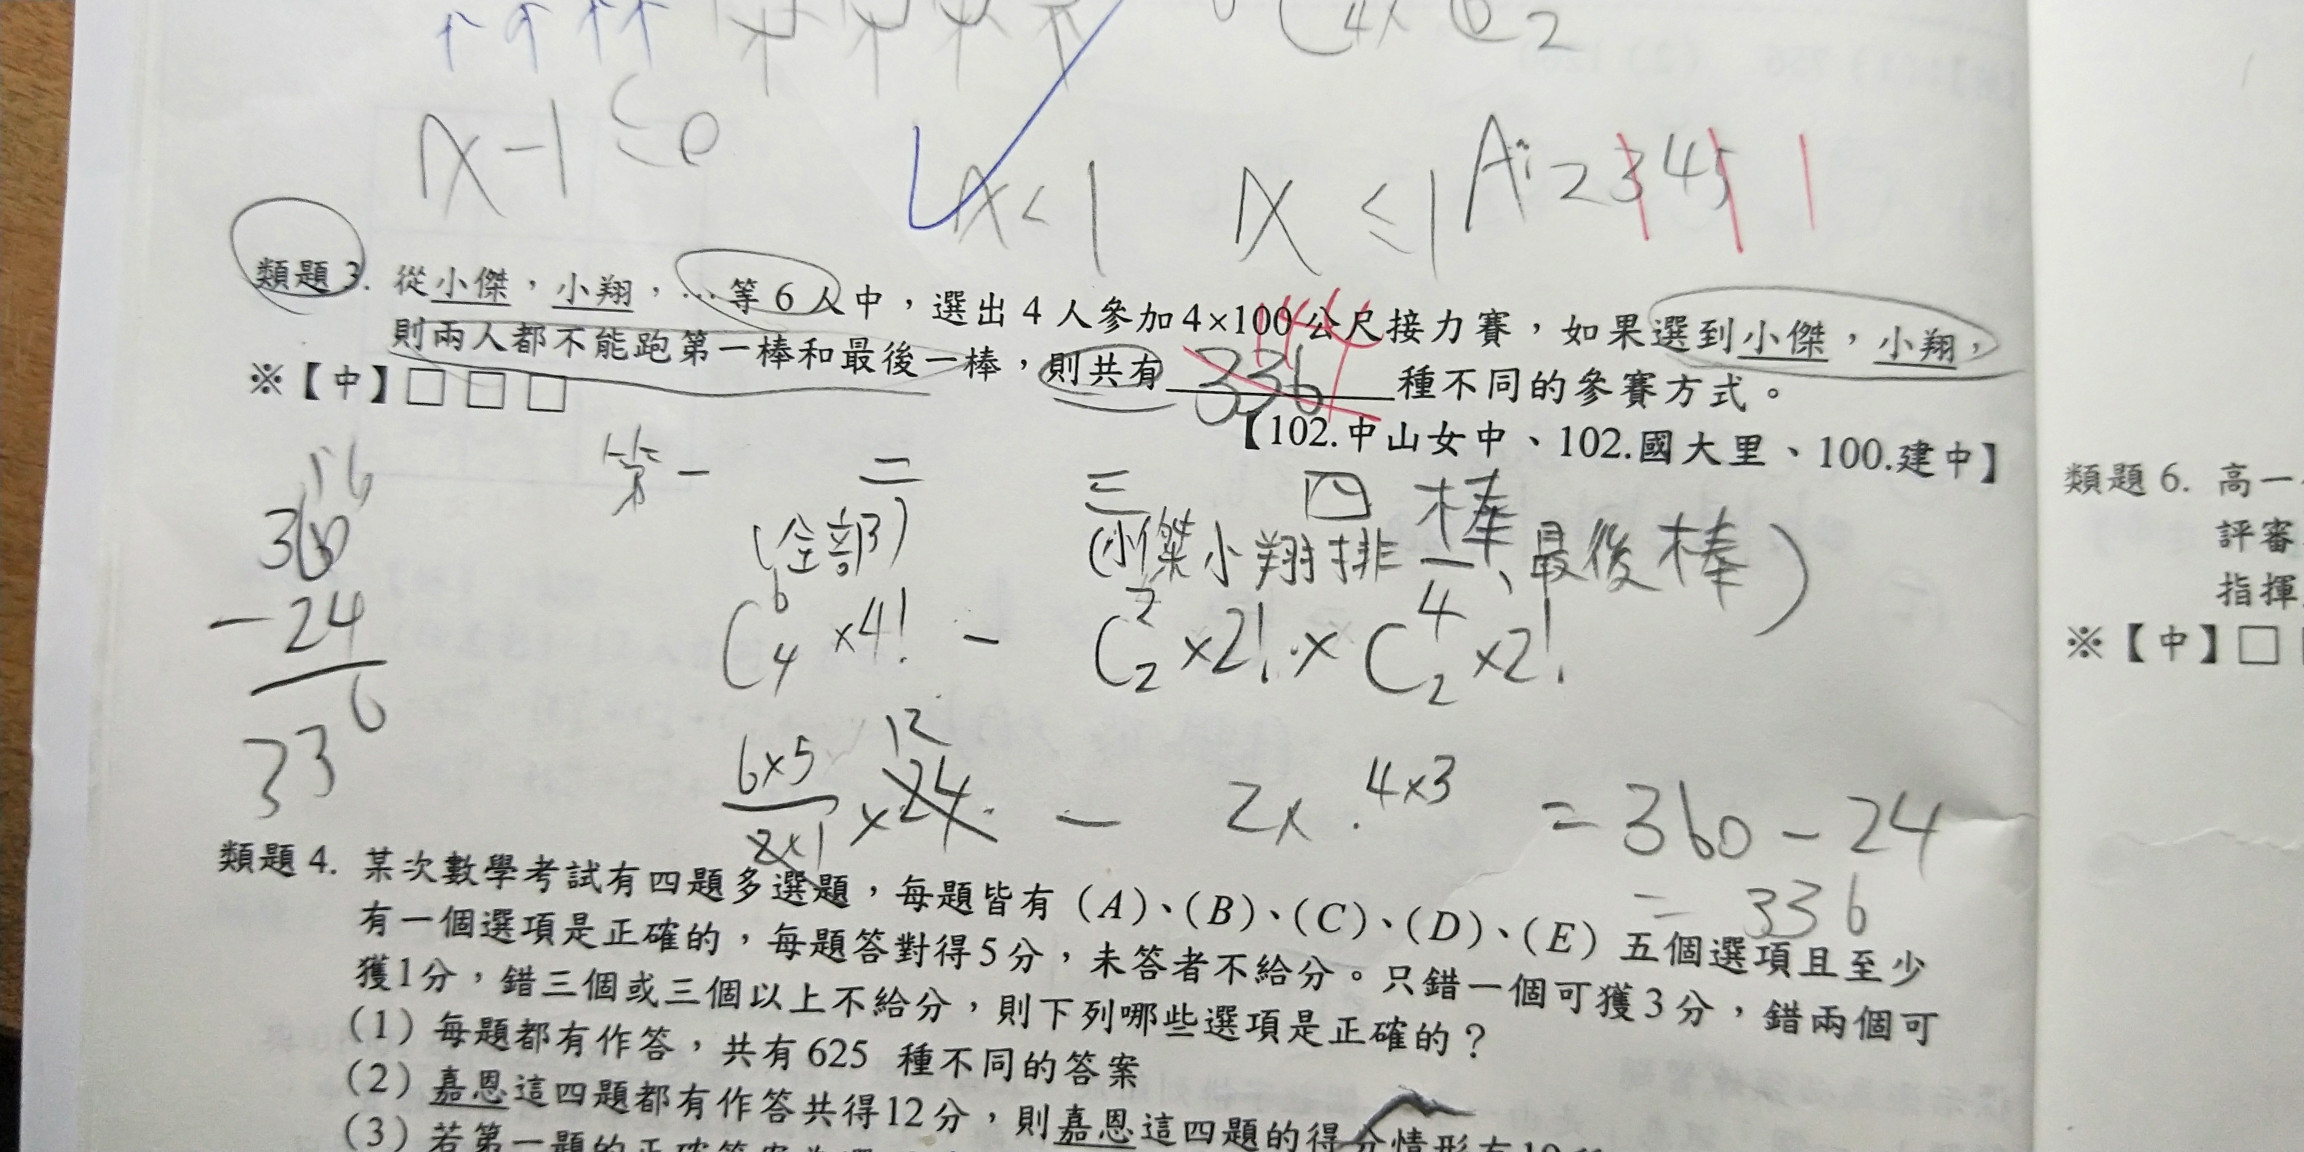 x-1≤0
x<1
x≤1
A:2345
類題3. 從小傑,小翔,…等6人中,選出4人參加4×100公尺接力賽,如果選到小傑,小翔,
則兩人都不能跑第一棒和最後一棒,則共有 336 種不同的參賽方式。
※【中】□□□
【102.中山女中、102.國大里、100.建中】
第一 二 三 四 棒
(全部) (小傑小翔排一、最後棒)
C⁶₄×4! - C²₂×2!×C⁴₂×2!
360
-24
336
6×5/2×1 ×24 12 - 2×4×3 = 360-24
= 336
類題4. 某次數學考試有四題多選題,每題皆有(A)、(B)、(C)、(D)、(E)五個選項且至少
有一個選項是正確的,每題答對得5分,未答者不給分。只錯一個可獲3分,錯兩個可
獲1分,錯三個或三個以上不給分,則下列哪些選項是正確的?
(1)每題都有作答,共有625 種不同的答案
(2)嘉恩這四題都有作答共得12分,則嘉恩這四題的得分情形有
(3)若第一題的正確答案為
類題6. 高一
評審
指揮
※【中】□